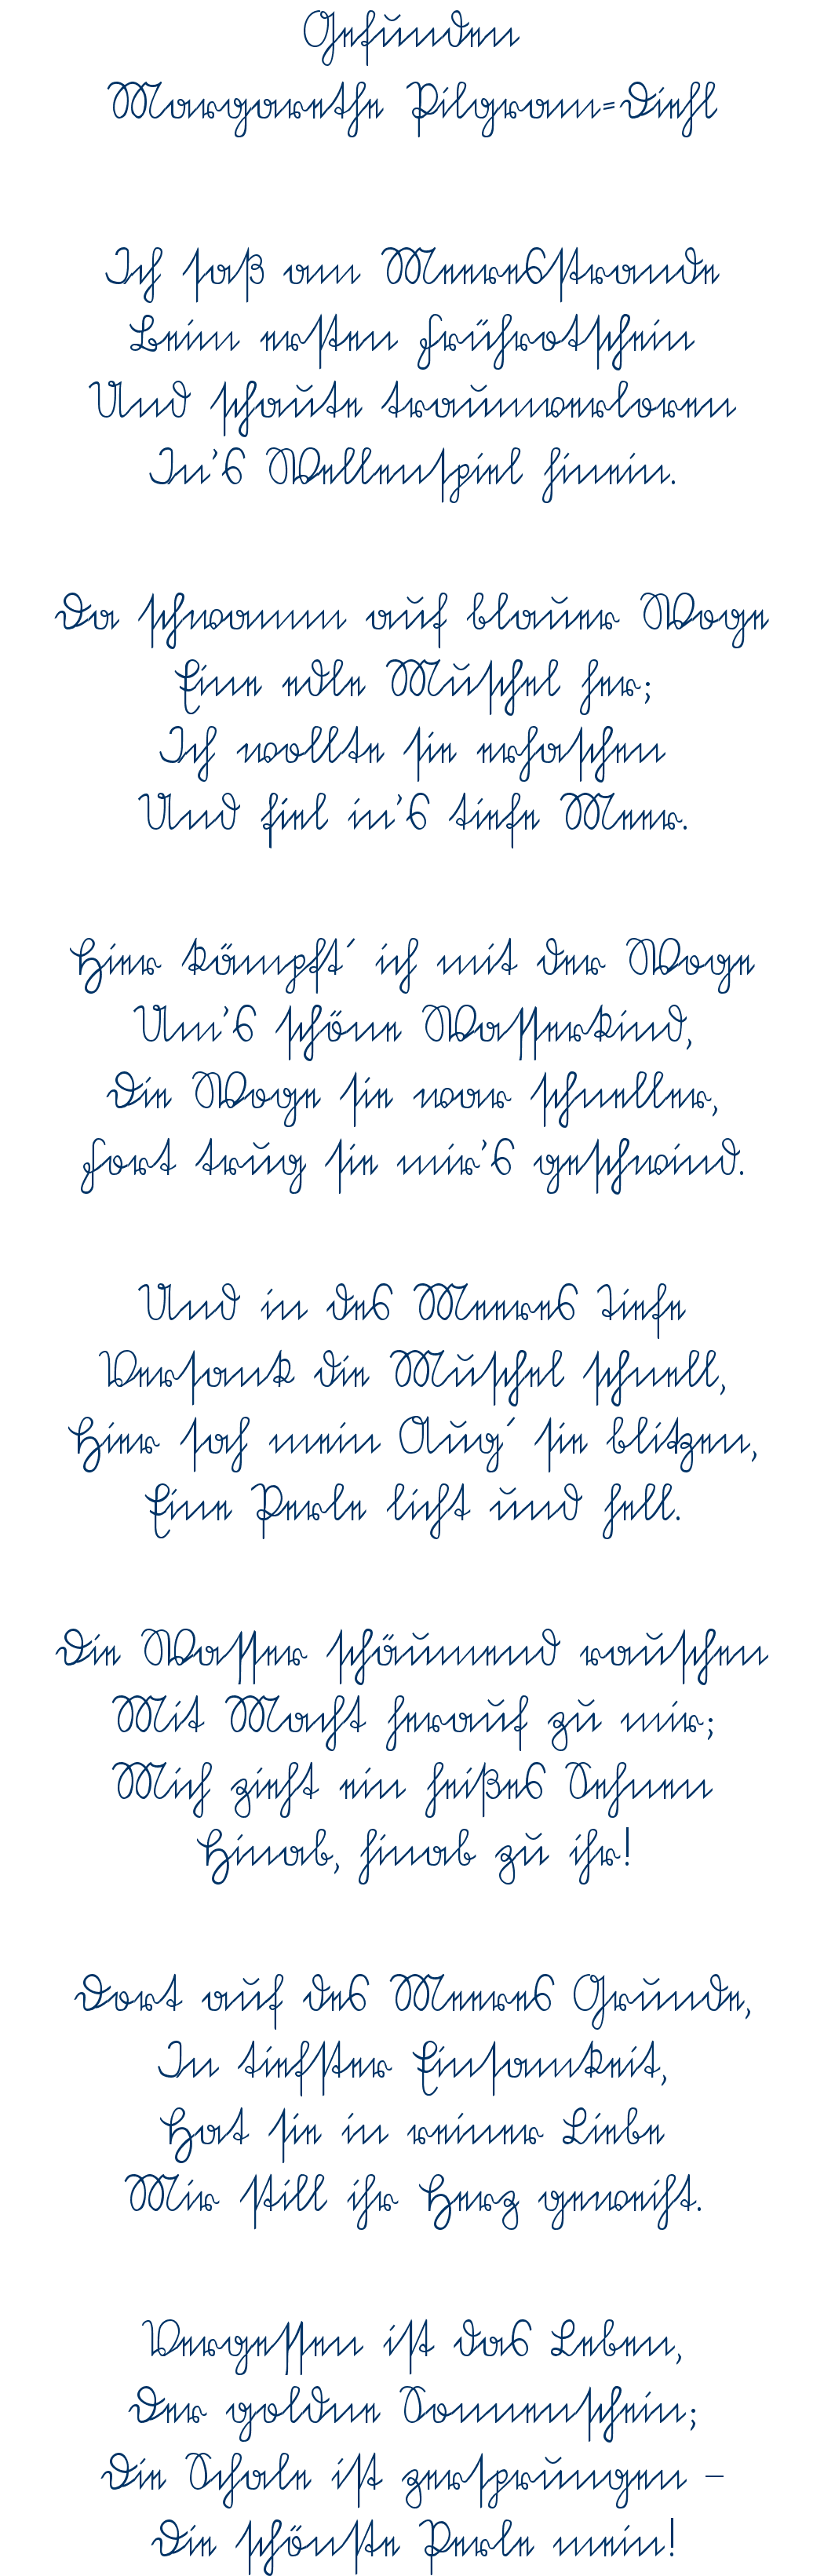 Gefunden
Margarethe Pilgram-Diehl
Ich saß am Meeresstrande
Beim ersten Frührotschein
Und schaute traumverloren
In's Wellenspiel hinein.
Da schwamm auf blauer Woge
Eine edle Muschel her;
Ich wollte sie erhaschen
Und fiel in's tiefe Meer.
Hier kämpft´ ich mit der Woge
Um's schöne Wasserkind,
Die Woge sie war schneller,
Fort trug sie mir's geschwind.
Und in des Meeres Tiefe
Versank die Muschel schnell,
Hier sah mein Aug´ sie blitzen,
Eine Perle licht und hell.
Die Wasser schäumend rauschen
Mit Macht herauf zu mir;
Mich zieht ein heißes Sehnen
Hinab, hinab zu ihr!
Dort auf des Meeres Grunde,
In tiefster Einsamkeit,
Hat sie in reiner Liebe
Mir still ihr Herz geweiht.
Vergessen ist das Leben,
Der goldne Sonnenschein;
Die Schale ist zersprungen –
Die schönste Perle mein!